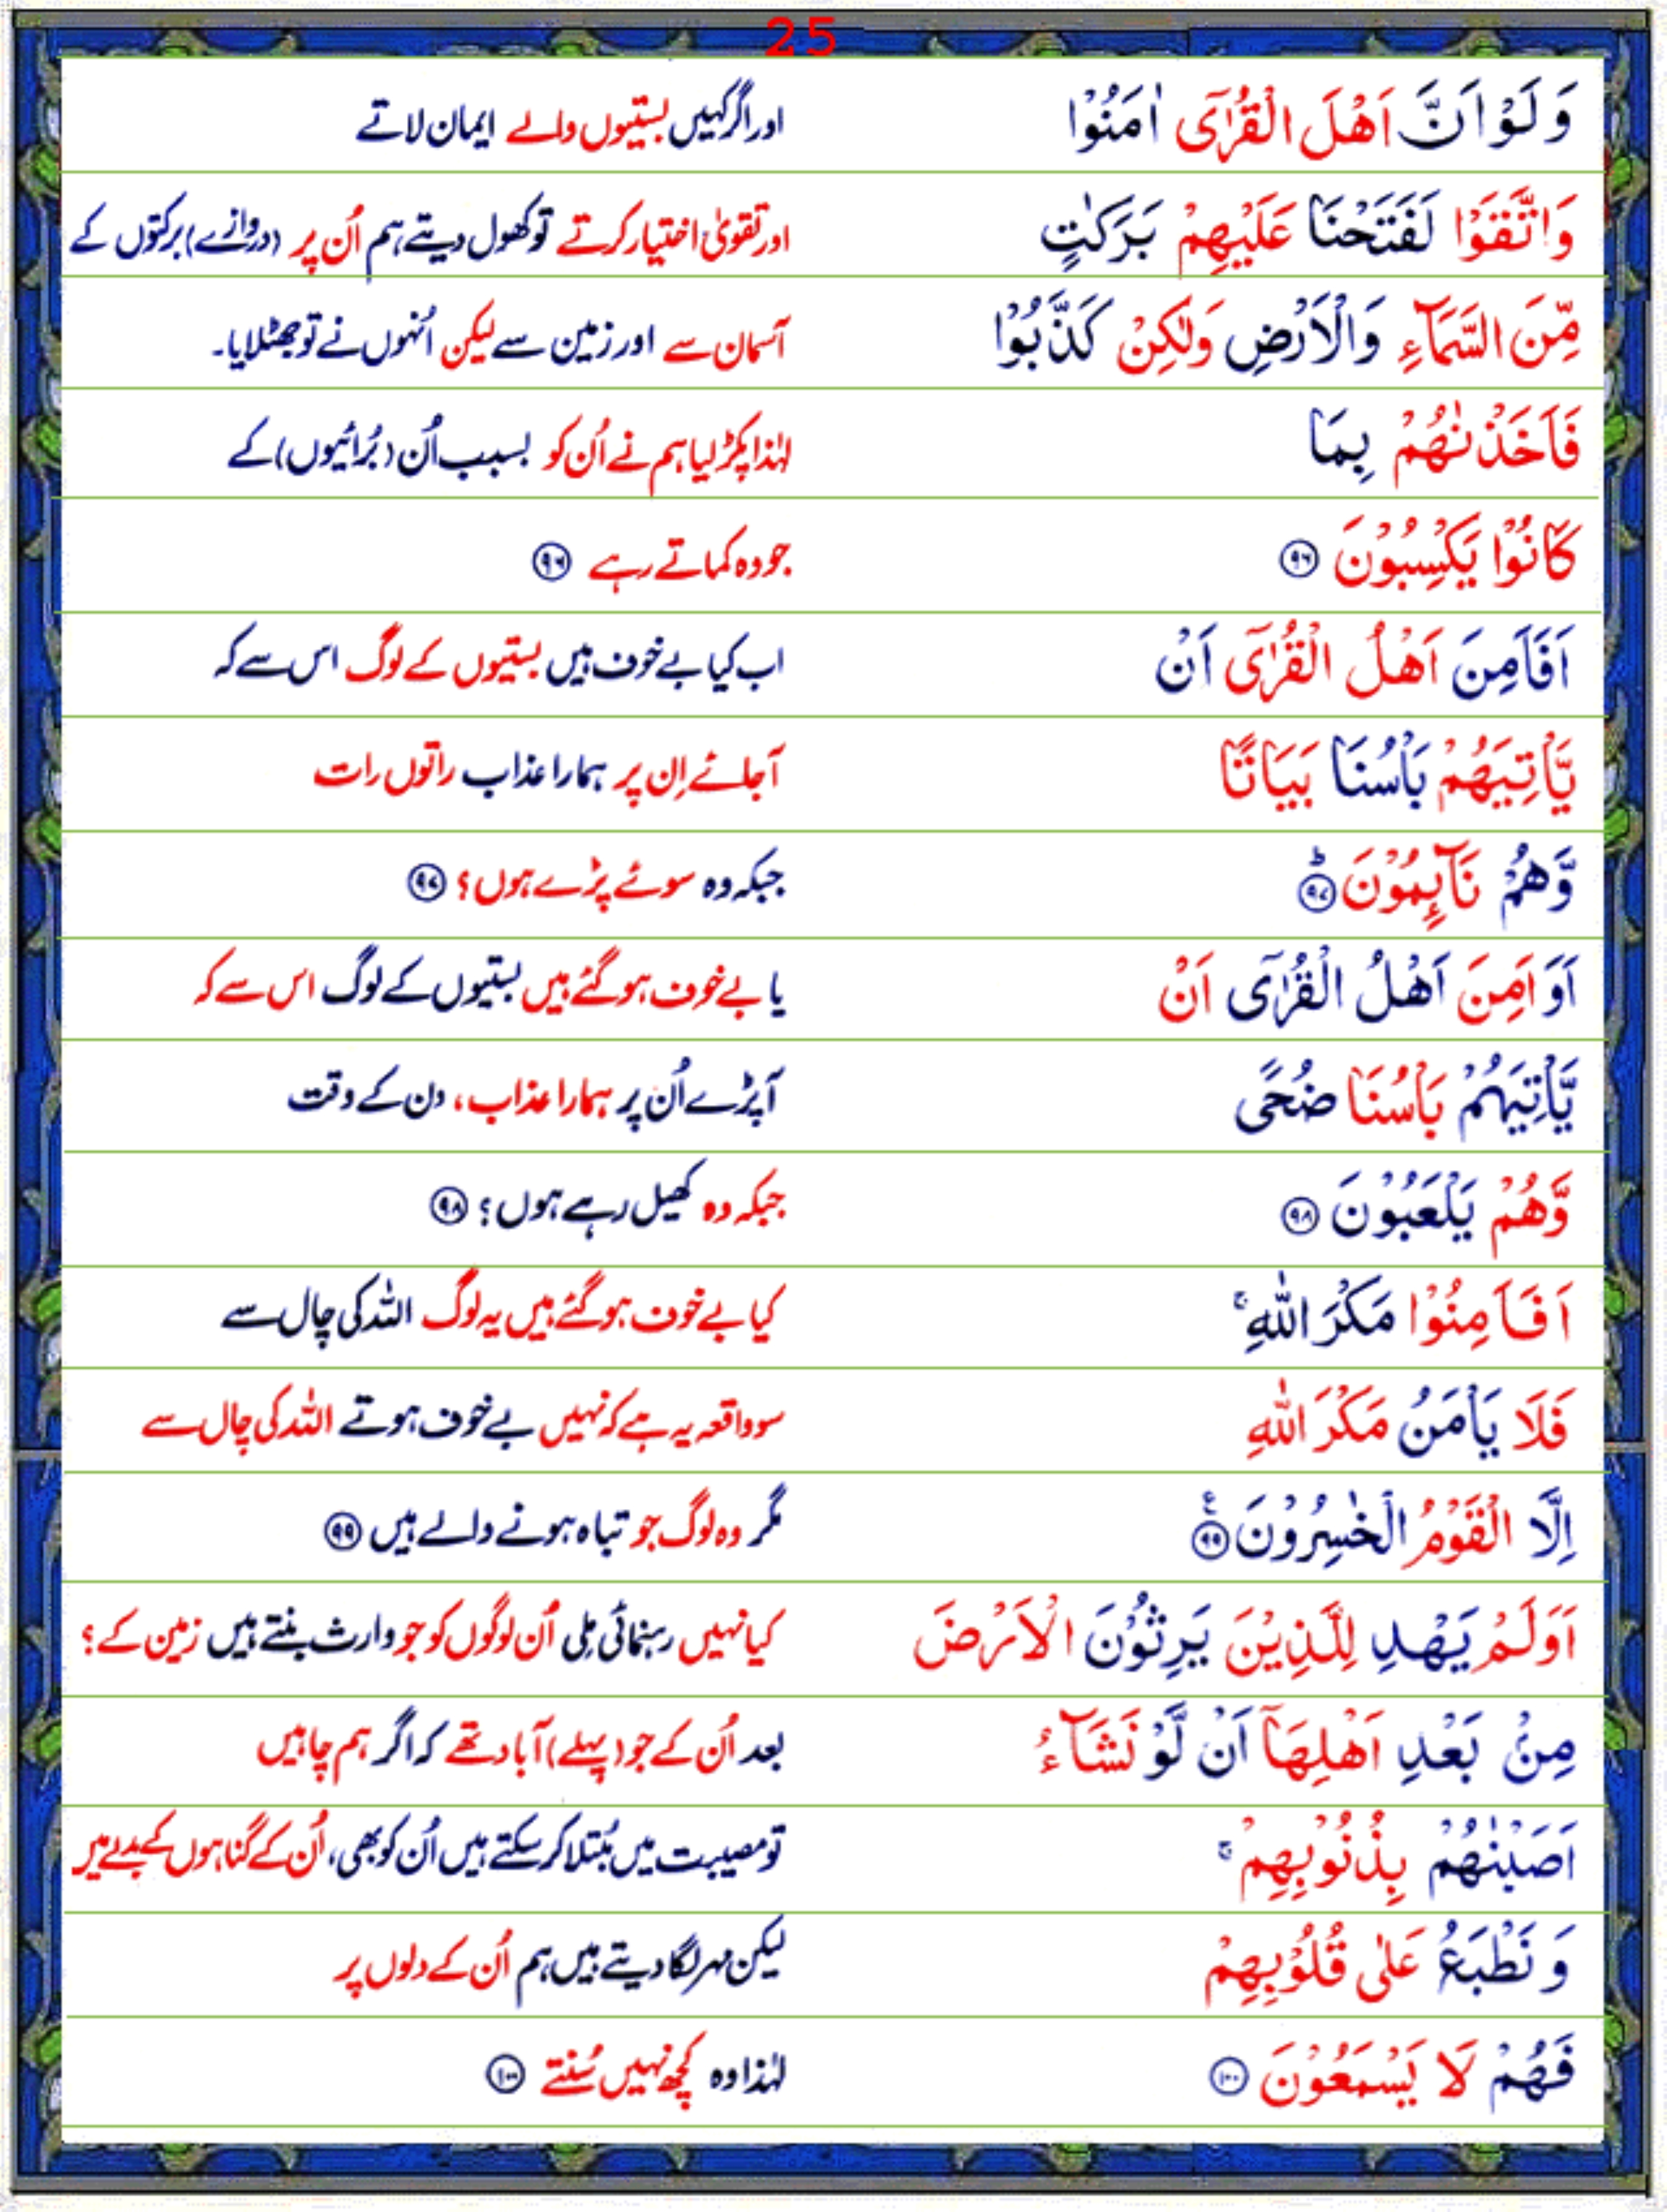 25
وَ لَوْ اَنَّ اَهْلَ الْقُرٰٓى اٰمَنُوْا اور اگر کہیں بستیوں والے ایمان لاتے
وَاتَّقَوْا لَفَتَحْنَا عَلَيْهِمْ بَرَكٰتٍ اور تقویٰ اختیار کرتے تو کھول دیتے ہم اُن پر (دروازے) برکتوں کے
مِّنَ السَّمَآءِ وَالْاَرْضِ وَلٰكِنْ كَذَّبُوْا آسمان سے اور زمین سے لیکن اُنہوں نے تو جھٹلایا۔
فَاَخَذْنٰهُمْ بِمَا لہٰذا پکڑ لیا ہم نے اُن کو بسبب اُن (بُرائیوں) کے
كَانُوْا يَكْسِبُوْنَ ۹۶ جو وہ کماتے رہے ۹۶
اَفَاَمِنَ اَهْلُ الْقُرٰٓى اَنْ اب کیا بے خوف ہیں بستیوں کے لوگ اس سے کہ
يَّاْتِيَهُمْ بَاْسُنَا بَيَاتًا آجائے اِن پر ہمارا عذاب راتوں رات
وَّهُمْ نَآىِٕمُوْنَ ؕ ۹۷ جبکہ وہ سوئے پڑے ہوں؟ ۹۷
اَوَ اَمِنَ اَهْلُ الْقُرٰٓى اَنْ یا بے خوف ہو گئے ہیں بستیوں کے لوگ اس سے کہ
يَّاْتِيَهُمْ بَاْسُنَا ضُحًى آپڑے اُن پر ہمارا عذاب، دن کے وقت
وَّهُمْ يَلْعَبُوْنَ ۹۸ جبکہ وہ کھیل رہے ہوں؟ ۹۸
اَفَاَمِنُوْا مَكْرَ اللّٰهِ ۚ کیا بے خوف ہو گئے ہیں یہ لوگ اللہ کی چال سے
فَلَا يَاْمَنُ مَكْرَ اللّٰهِ سو واقعہ یہ ہے کہ نہیں بے خوف ہوتے اللہ کی چال سے
اِلَّا الْقَوْمُ الْخٰسِرُوْنَ ۹۹ ع مگر وہ لوگ جو تباہ ہونے والے ہیں ۹۹
اَوَلَمْ يَهْدِ لِلَّذِيْنَ يَرِثُوْنَ الْاَرْضَ کیا نہیں رہنمائی ملی اُن لوگوں کو جو وارث بنتے ہیں زمین کے؟
مِنْۢ بَعْدِ اَهْلِهَاۤ اَنْ لَّوْ نَشَآءُ بعد اُن کے جو (پہلے) آباد تھے کہ اگر ہم چاہیں
اَصَبْنٰهُمْ بِذُنُوْبِهِمْ ۚ تو مصیبت میں مُبتلا کر سکتے ہیں اُن کو بھی، اُن کے گناہوں کے بدلے میں
وَ نَطْبَعُ عَلٰى قُلُوْبِهِمْ لیکن مہر لگا دیتے ہیں ہم اُن کے دلوں پر
فَهُمْ لَا يَسْمَعُوْنَ ۱۰۰ لہٰذا وہ کچھ نہیں سُنتے ۱۰۰